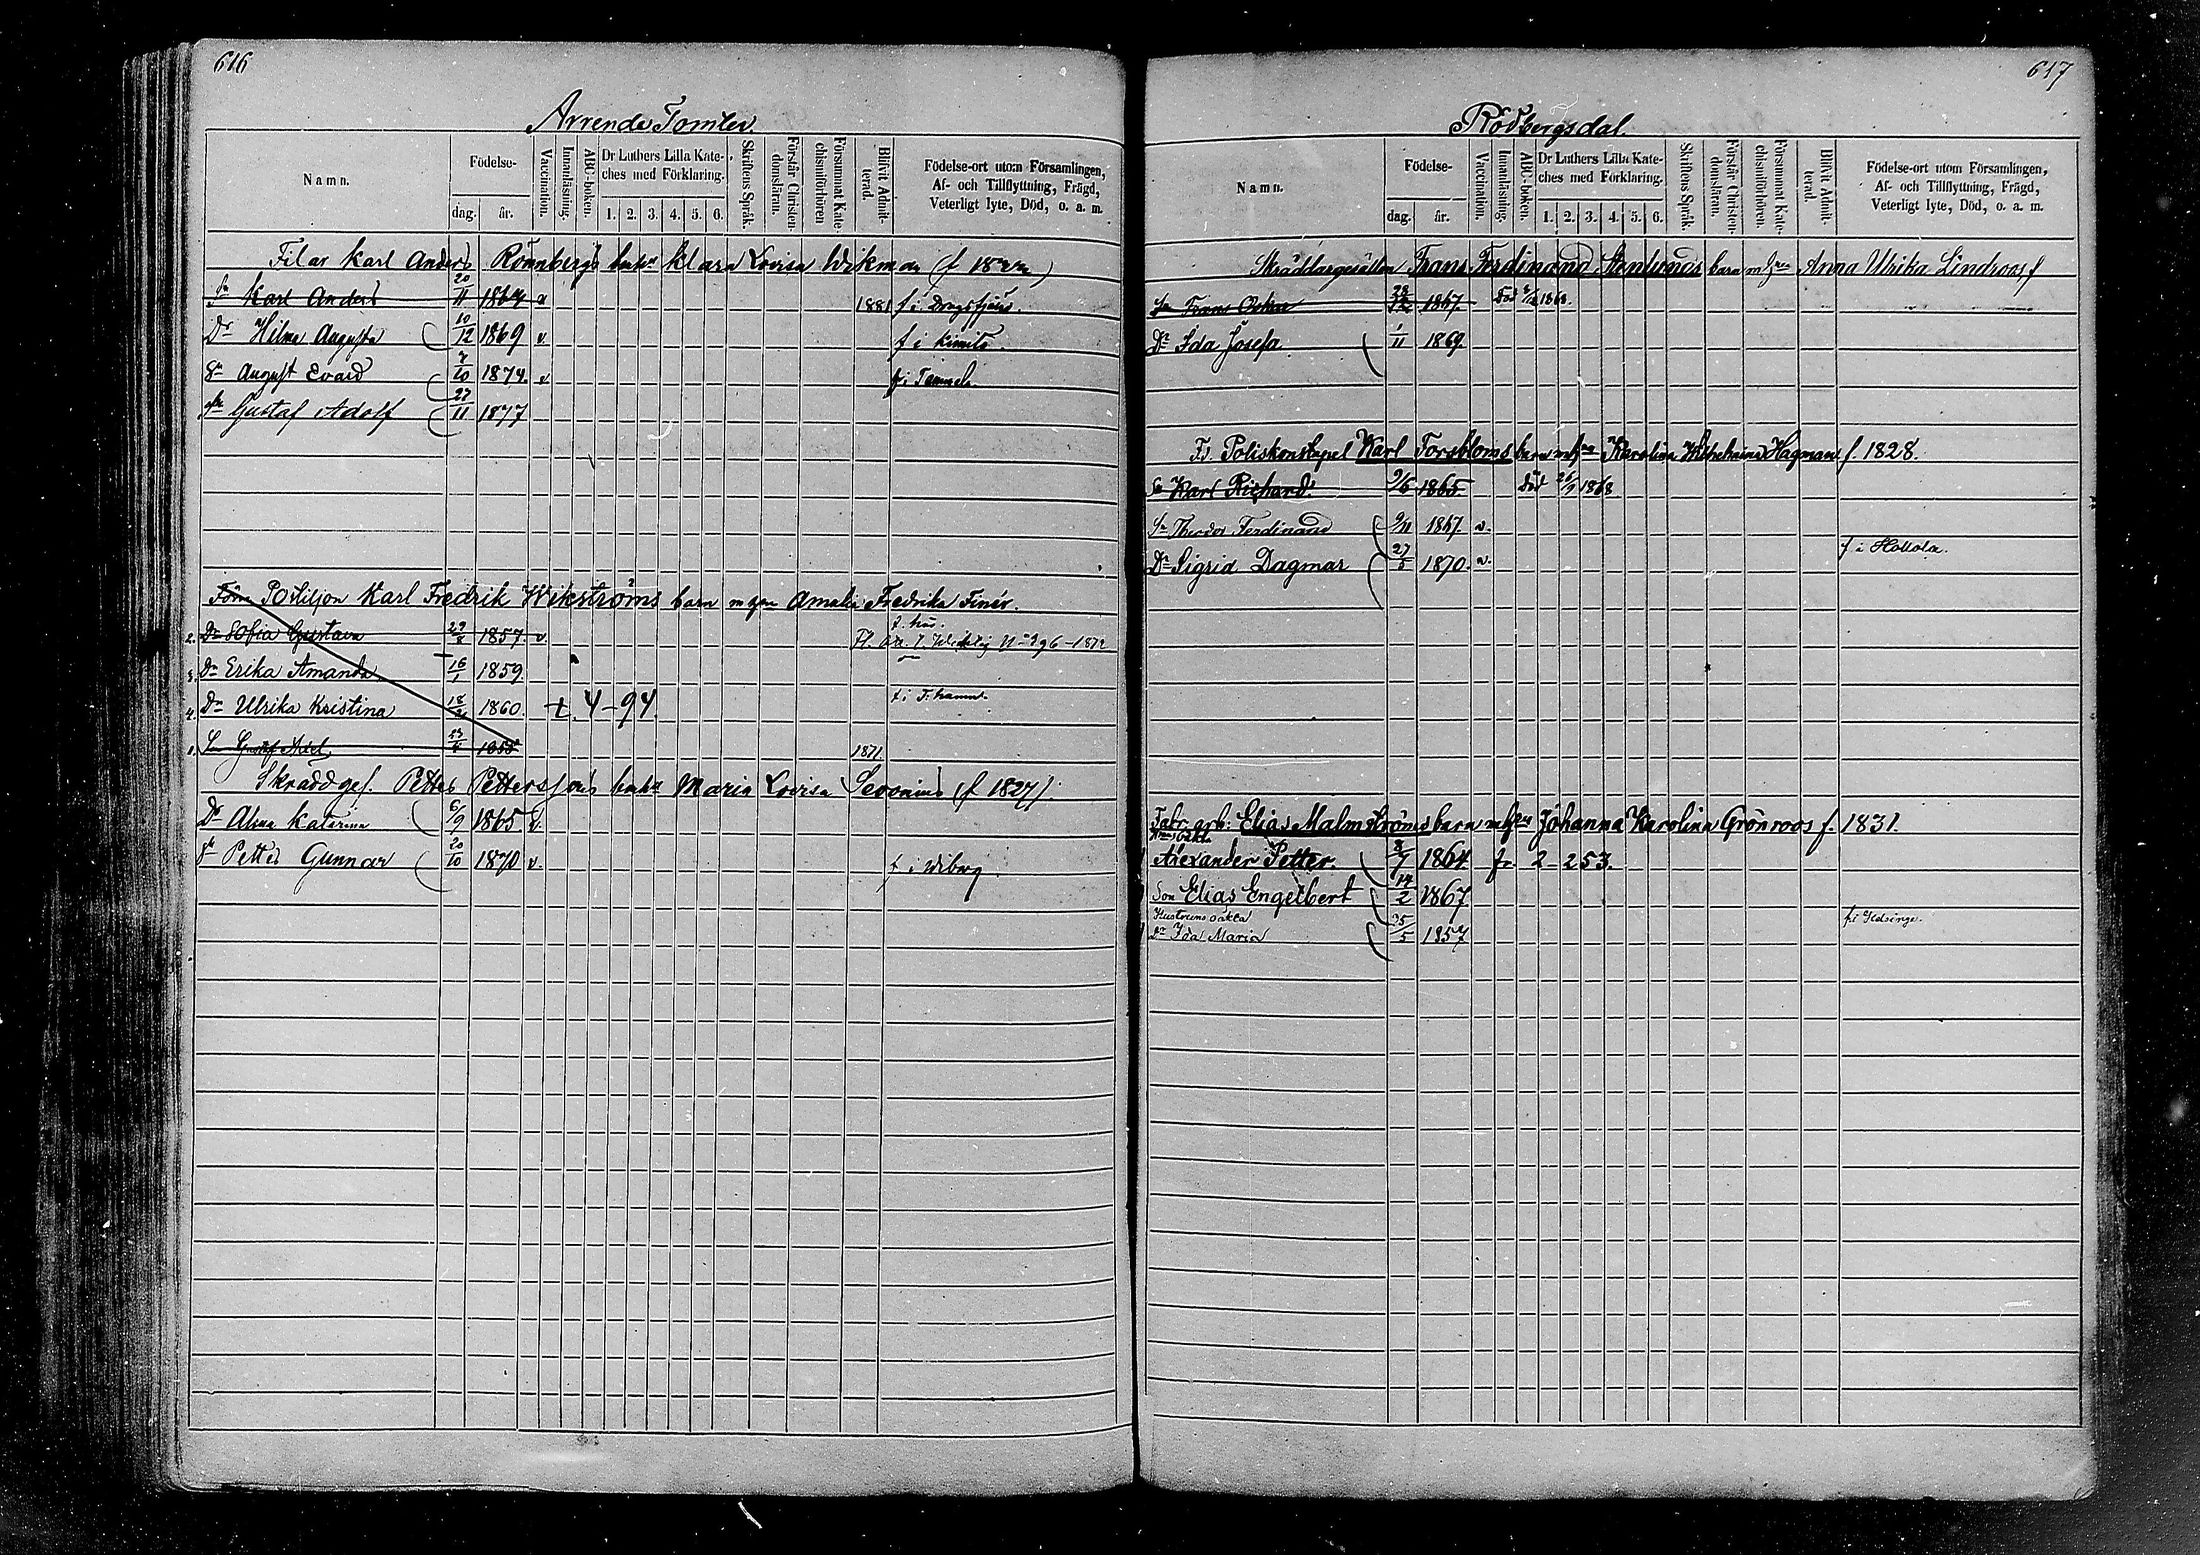 616
Arrende Tomter.
Namn.
Födelse-
dag.
år.
Vaccination.
Innanläsning.
ABC-boken.
Dr Luthers Lilla Kate-
ches med Förklaring.
1. 2. 3. 4. 5. 6.
Skriftens Språk.
Förstår Christen-
domsläran.
Försummat Kate-
chismiförhören
Blifvit Admit-
terad.
Födelse-ort utom Församlingen,
Af- och Tillflyttning, Frägd,
Veterligt lyte, Död, o. a. m.
Filar Karl Anders Rönnbergs Klara Lovisa Wikman
Sn Karl Anders 20/11 1864 v 1881 f i Dragsfjärd.
Dr Hilma Augusta 10/12 1869 v. f i Kimito.
Sn August Evard /10 1874. v f i Tammela
Gustaf Adolf 27/11 1877
Postiljon Karl Fredrik Wikströms barn m Amalia Fredrika Finér.
2. Dr Sofia Gustava 29/8 1857. v.
3. Dr Erika Amanda 16/1 1859
4. Dr Ulrika Kristina 18/ 1860. t. 4-94.
1. Gustaf Axel 23/ 1855 1871
Skraddges. Petter Petterssons Maria Lovisa (f 1827).
Dr Alma Katarina 6/9 1865 v.
Sn Petter Gunnar 20/10 1870 v. f i Wiborg
617
Rödbergsdal.
Namn.
Födelse-
dag.
år.
Vaccination.
Innanläsning.
ABC-boken.
Dr Luthers Lilla Kate-
ches med Förklaring.
1. 2. 3. 4. 5. 6.
Skriftens Språk.
Förstår Christen-
domsläran.
Försummat Kate-
chismiförhören.
Blifvit Admit-
terad.
Födelse-ort utom Församlingen,
Af- och Tillflyttning, Frägd,
Veterligt lyte, Död, o. a. m.
Skräddaregesällen Frans Ferdinand Stenlunds barn m Anna Ulrika Lindroos f
Sn Frans Oskar 1867. Död 1868.
Dr Ida Josefa 1/11 1869.
Fd. Poliskonstapel Karl Forsbloms barn m Karolina Wilhelmina Hagman f. 1828.
Sn Karl Richard. 9/6 1865. Död 26/9 1868
Sn Theodor Ferdinand 9/11 1867. v.
Dr Sigrid Dagmar 27/5 1870. v. f i Hollola.
Fabr. arb: Elias Malmströms barn m Johanna Karolina Grönroos f. 1831.
Alexander Petter. 8/7 1864. fr. 2-253.
Son Elias Engelbert 14/2 1867
Hustruns oäkta
Dr Ida Maria 25/5 1857 f i Helsinge.